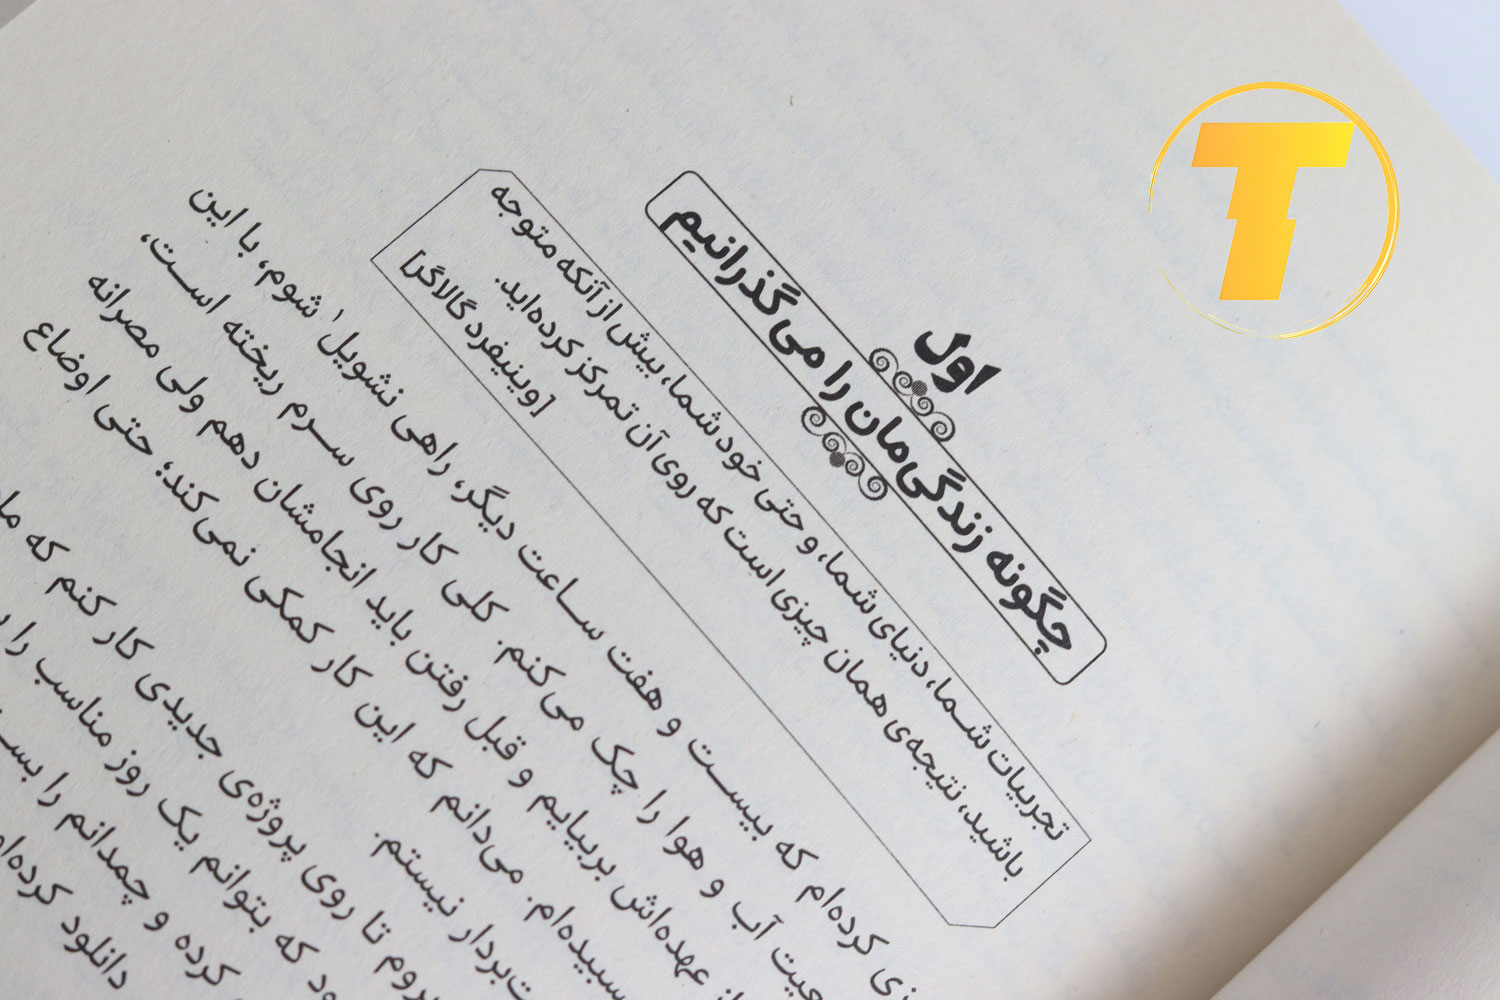 اول
چگونه زندگی‌مان را می‌گذرانیم
تجربیات شما، دنیای شما، و حتی خود شما، بیش از آنکه متوجه
باشید، نتیجه‌ی همان چیزی است که روی آن تمرکز کرده‌اید.
[وینیفرد گالاگر]
کرده‌ام که بیست و هفت ساعت دیگر، راهی نشویل۱ شوم، با این
آب و هوا را چک می‌کنم. کلی کار روی سرم ریخته است،
عهده‌اش بربیایم و قبل رفتن باید انجامشان دهم ولی مصرانه
می‌دانم که این کار کمکی نمی‌کند؛ حتی اوضاع
نیستم.
تا روی پروژه‌ی جدیدی کار کنم که
که بتوانم یک روز مناسب را
کرده و چمدانم را
دانلود
T